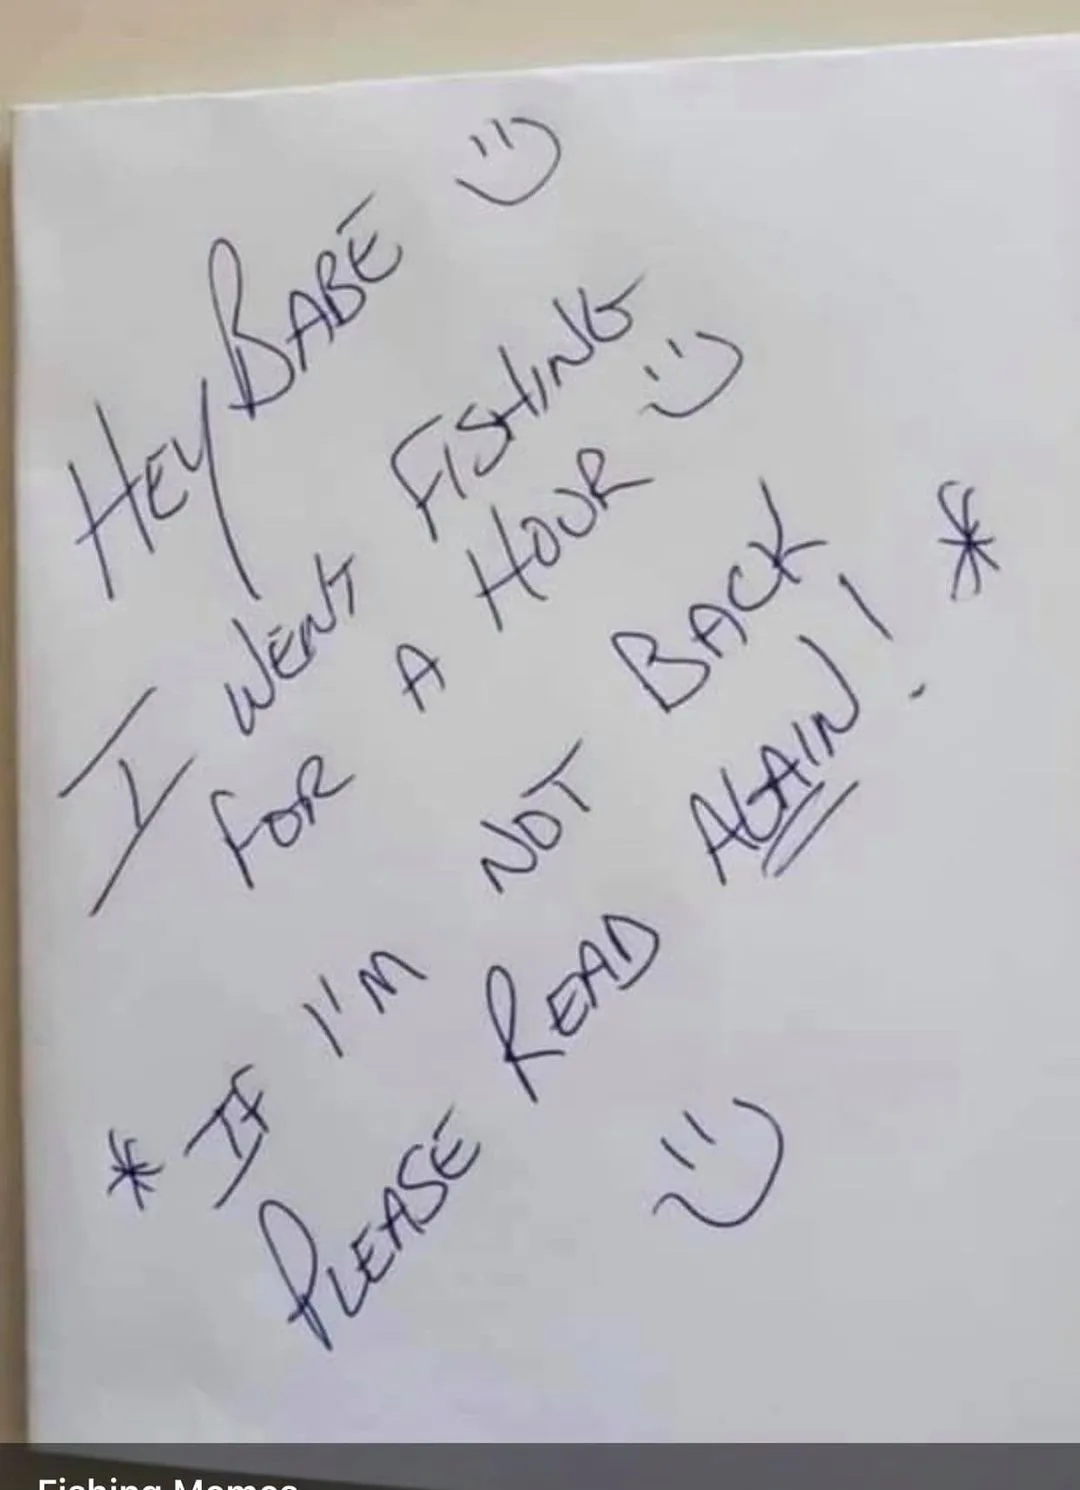 HEY BABE :)
I WENT FISHING
FOR A HOUR :)
* IF I'M NOT BACK *
PLEASE READ AGAIN!
:)
Fishing Memes